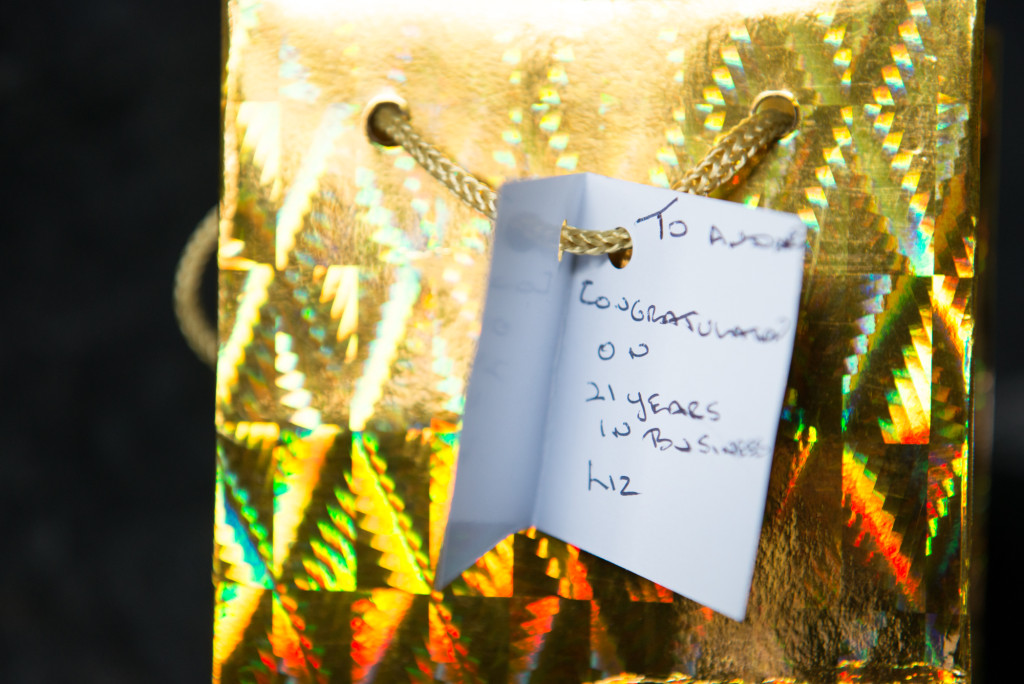 TO
CONGRATULATIONS
ON
21 YEARS
IN BUSINESS
LIZ